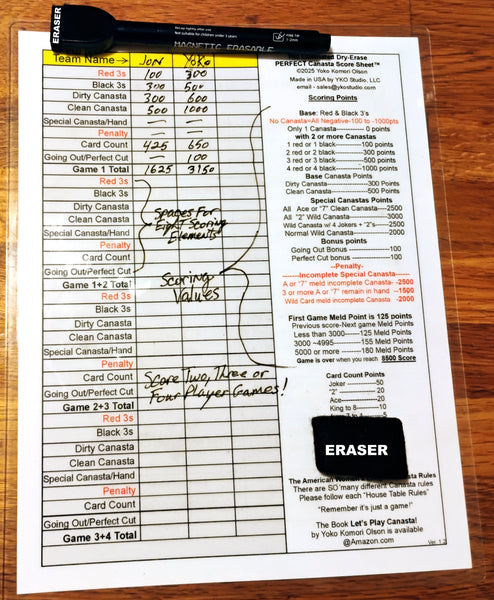 ERASER
FINE TIP
1-2mm
Not suitable for children under 3 years
MAGNETIC ERASABLE
Team Name→ JON YOKO
Red 3s 100 300
Black 3s 300 500
Dirty Canasta 300 600
Clean Canasta 500 1000
Special Canasta/Hand — —
Penalty — —
Card Count 425 650
Going Out/Perfect Cut — 100
Game 1 Total 1625 3150
Red 3s
Black 3s
Dirty Canasta
Clean Canasta
Special Canasta/Hand
Penalty
Card Count
Going Out/Perfect Cut
Spaces For
Eight Scoring
Elements
Game 1+2 Total
Scoring
Values
Red 3s
Black 3s
Dirty Canasta
Clean Canasta
Special Canasta/Hand
Penalty
Card Count
Going Out/Perfect Cut
Score Two, Three or
Four Player Games!
Game 2+3 Total
Red 3s
Black 3s
Dirty Canasta
Clean Canasta
Special Canasta/Hand
Penalty
Card Count
Going Out/Perfect Cut
Game 3+4 Total
Dry-Erase
PERFECT Canasta Score Sheet™
©2025 Yoko Komori Olson
Made in USA by YKO Studio, LLC
email - sales@ykostudio.com
Scoring Points
Base: Red & Black 3's
No Canasta=All Negative-100 to -1000pts
Only 1 Canasta----------0 points
with 2 or more Canastas
1 red or 1 black----------100 points
2 red or 2 black----------300 points
3 red or 3 black----------500 points
4 red or 4 black---------1000 points
Base Canasta Points
Dirty Canasta----------300 Points
Clean Canasta----------500 Points
Special Canastas Points
All Ace or "7" Clean Canasta----2500
All "2" Wild Canasta------------3000
Wildcard Canasta w/ 4 Jokers + "2"s----2500
Normal Wild Canasta----------2000
Bonus points
Going Out Bonus --------------100
Perfect Cut bonus -------------100
--Penalty-
-------Incomplete Special Canasta-----
A or "7" meld incomplete Canasta- -2500
3 or more A or "7" remain in hand --1500
Wild Card meld incomplete Canasta -2000
First Game Meld Point is 125 points
Previous score-Next game Meld Points
Less than 3000-------125 Meld Points
3000 ~4995----------155 Meld Points
5000 or more --------180 Meld Points
Game is over when you reach 8500 Score
Card Count Points
Joker ------------50
"2" --------------20
Ace--------------20
King to 8---------10
ERASER
The American Canasta Rules
There are SO many different Canasta rules
Please follow each "House Table Rules"
"Remember it's just a game!"
The Book Let's Play Canasta!
by Yoko Komori Olson is available
@Amazon.com
Ver. 1.2